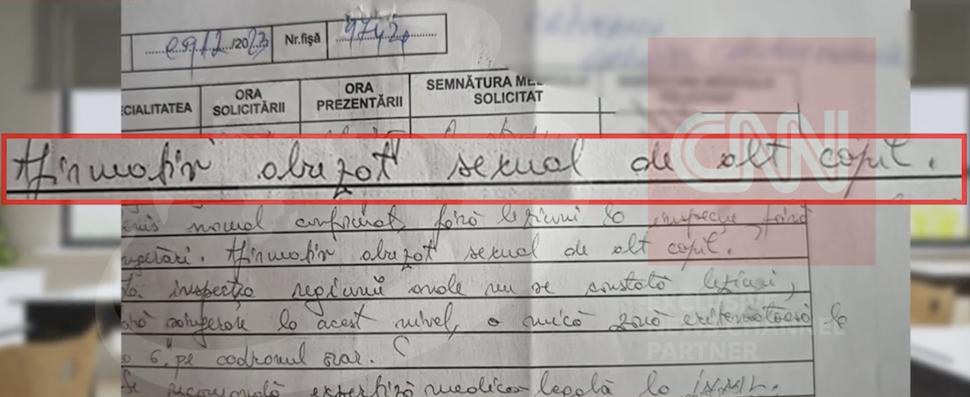 09/12/2023 Nr.fişă 9742
CIALITATEA ORA SOLICITĂRII ORA PREZENTĂRII SEMNĂTURA ME SOLICITAT
Afirmativ abuzat sexual de alt copil.
CNN
normal conformat, fără leziuni la inspecție fără
sângerări. Afirmativ abuzat sexual de alt copil.
inspecția regiunii anale nu se constată leziuni,
sângerare la acest nivel, o mică zonă eritematoasă la
6" pe cadranul orar.
PARTNER
Se recomandă expertiză medico-legală la INML.